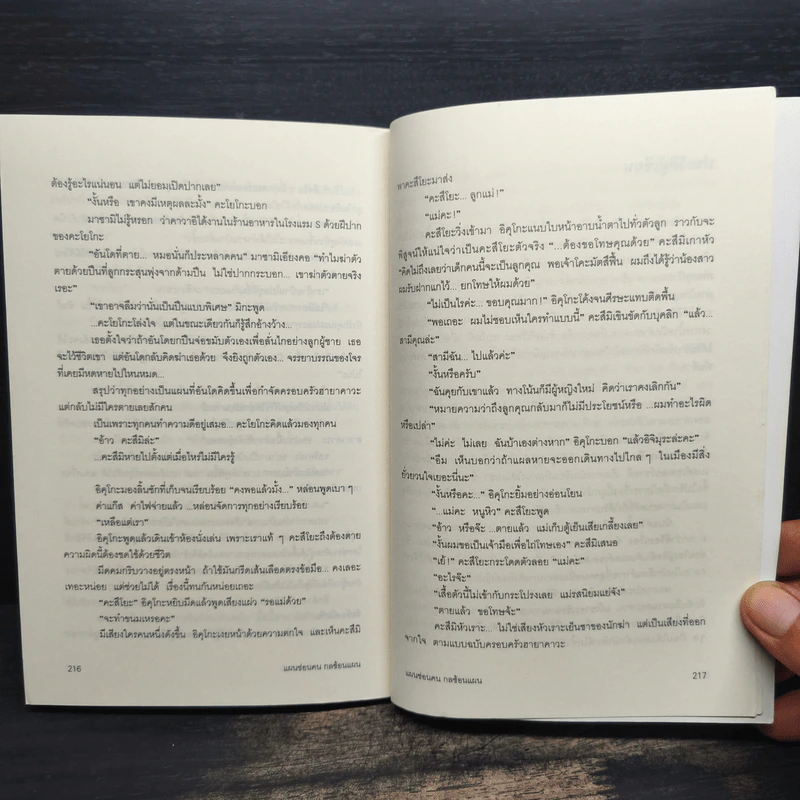 ต้องรู้อะไรแน่นอน แต่ไม่ยอมเปิดปากเลย”
“งั้นหรือ เขาคงมีเหตุผลละมั้ง” คะโยโกะบอก
มาซามิไม่รู้หรอก ว่าคาวาอิได้งานในร้านอาหารในโรงแรม S ด้วยฝีปาก
ของคะโยโกะ
“อันโดที่ตาย... หมอนั่นก็ประหลาดคน” มาซามิเอียงคอ “ทำไมฆ่าตัว
ตายด้วยปืนที่ลูกกระสุนพุ่งจากด้ามปืน ไม่ใช่ปากกระบอก... เขาฆ่าตัวตายจริง
เรอะ”
“เขาอาจลืมว่านั่นเป็นปืนแบบพิเศษ” มิกะพูด
...คะโยโกะโล่งใจ แต่ในขณะเดียวกันก็รู้สึกอ้างว้าง...
เธอตั้งใจว่าถ้าอันโดยกปืนจ่อขมับตัวเองเพื่อลั่นไกอย่างลูกผู้ชาย เธอ
จะไว้ชีวิตเขา แต่อันโดกลับคิดฆ่าเธอด้วย จึงยิงถูกตัวเอง... จรรยาบรรณของโจร
ที่เคยมีหมดหายไปไหนหมด...
สรุปว่าทุกอย่างเป็นแผนที่อันโดคิดขึ้นเพื่อกำจัดครอบครัวฮายาคาวะ
แต่กลับไม่มีใครตายเลยสักคน
เป็นเพราะทุกคนทำความดีอยู่เสมอ... คะโยโกะคิดแล้วมองทุกคน
“อ้าว คะสึมิล่ะ”
...คะสึมิหายไปตั้งแต่เมื่อไหร่ไม่มีใครรู้
อิคุโกะมองลิ้นชักที่เก็บจนเรียบร้อย “คงพอแล้วมั้ง...” หล่อนพูดเบา ๆ
ค่าแก๊ส ค่าไฟจ่ายแล้ว ...หล่อนจัดการทุกอย่างเรียบร้อย
“เหลือแต่เรา”
อิคุโกะพูดแล้วเดินเข้าห้องนั่งเล่น เพราะเราแท้ ๆ คะสึโยะถึงต้องตาย
ความผิดนี้ต้องชดใช้ด้วยชีวิต
มีดคมกริบวางอยู่ตรงหน้า ถ้าใช้มันกรีดเส้นเลือดตรงข้อมือ... คงเลอะ
เทอะหน่อย แต่ช่วยไม่ได้ เรื่องนี้ทนกันหน่อยเถอะ
“คะสึโยะ” อิคุโกะหยิบมีดแล้วพูดเสียงแผ่ว “รอแม่ด้วย”
“จะทำขนมเหรอคะ”
มีเสียงใครคนหนึ่งดังขึ้น อิคุโกะเงยหน้าด้วยความตกใจ และเห็นคะสึมิ
216
แผนซ่อนคน กลซ้อนแผน
พาคะสึโยะมาส่ง
“คะสึโยะ... ลูกแม่!”
“แม่คะ!”
คะสึโยะวิ่งเข้ามา อิคุโกะแนบใบหน้าอาบน้ำตาไปทั่วตัวลูก ราวกับจะ
พิสูจน์ให้แน่ใจว่าเป็นคะสึโยะตัวจริง “...ต้องขอโทษคุณด้วย” คะสึมิเกาหัว
“คิดไม่ถึงเลยว่าเด็กคนนี้จะเป็นลูกคุณ พอเจ้าโคะมัตสึฟื้น ผมถึงได้รู้ว่าน้องสาว
ผมรับฝากแกไว้... ยกโทษให้ผมด้วย”
“ไม่เป็นไรค่ะ... ขอบคุณมาก!” อิคุโกะโค้งจนศีรษะแทบติดพื้น
“พอเถอะ ผมไม่ชอบเห็นใครทำแบบนี้” คะสึมิเขินขัดกับบุคลิก “แล้ว...
สามีคุณล่ะ”
“สามีฉัน... ไปแล้วค่ะ”
“งั้นหรือครับ”
“ฉันคุยกับเขาแล้ว ทางโน้นก็มีผู้หญิงใหม่ คิดว่าเราคงเลิกกัน”
“หมายความว่าถึงลูกคุณกลับมาก็ไม่มีประโยชน์หรือ ...ผมทำอะไรผิด
หรือเปล่า”
“ไม่ค่ะ ไม่เลย ฉันบ้าเองต่างหาก” อิคุโกะบอก “แล้วอิจิมุระล่ะคะ”
“อืม เห็นบอกว่าถ้าแผลหายจะออกเดินทางไปไกล ๆ ในเมืองมีสิ่ง
ยั่วยวนใจเยอะนี่นะ”
“งั้นหรือคะ...” อิคุโกะยิ้มอย่างอ่อนโยน
“...แม่คะ หนูหิว” คะสึโยะพูด
“อ้าว หรือจ๊ะ ...ตายแล้ว แม่เก็บตู้เย็นเสียเกลี้ยงเลย”
“งั้นผมขอเป็นเจ้ามือเพื่อไถ่โทษเอง” คะสึมิเสนอ
“เย้!” คะสึโยะกระโดดตัวลอย “แม่คะ”
“อะไรจ๊ะ”
“เสื้อตัวนี้ไม่เข้ากับกระโปรงเลย แม่รสนิยมแย่จัง”
“ตายแล้ว ขอโทษจ้ะ”
คะสึมิหัวเราะ... ไม่ใช่เสียงหัวเราะเย็นชาของนักฆ่า แต่เป็นเสียงที่ออก
จากใจ ตามแบบฉบับครอบครัวฮายาคาวะ
แผนซ่อนคน กลซ้อนแผน
217